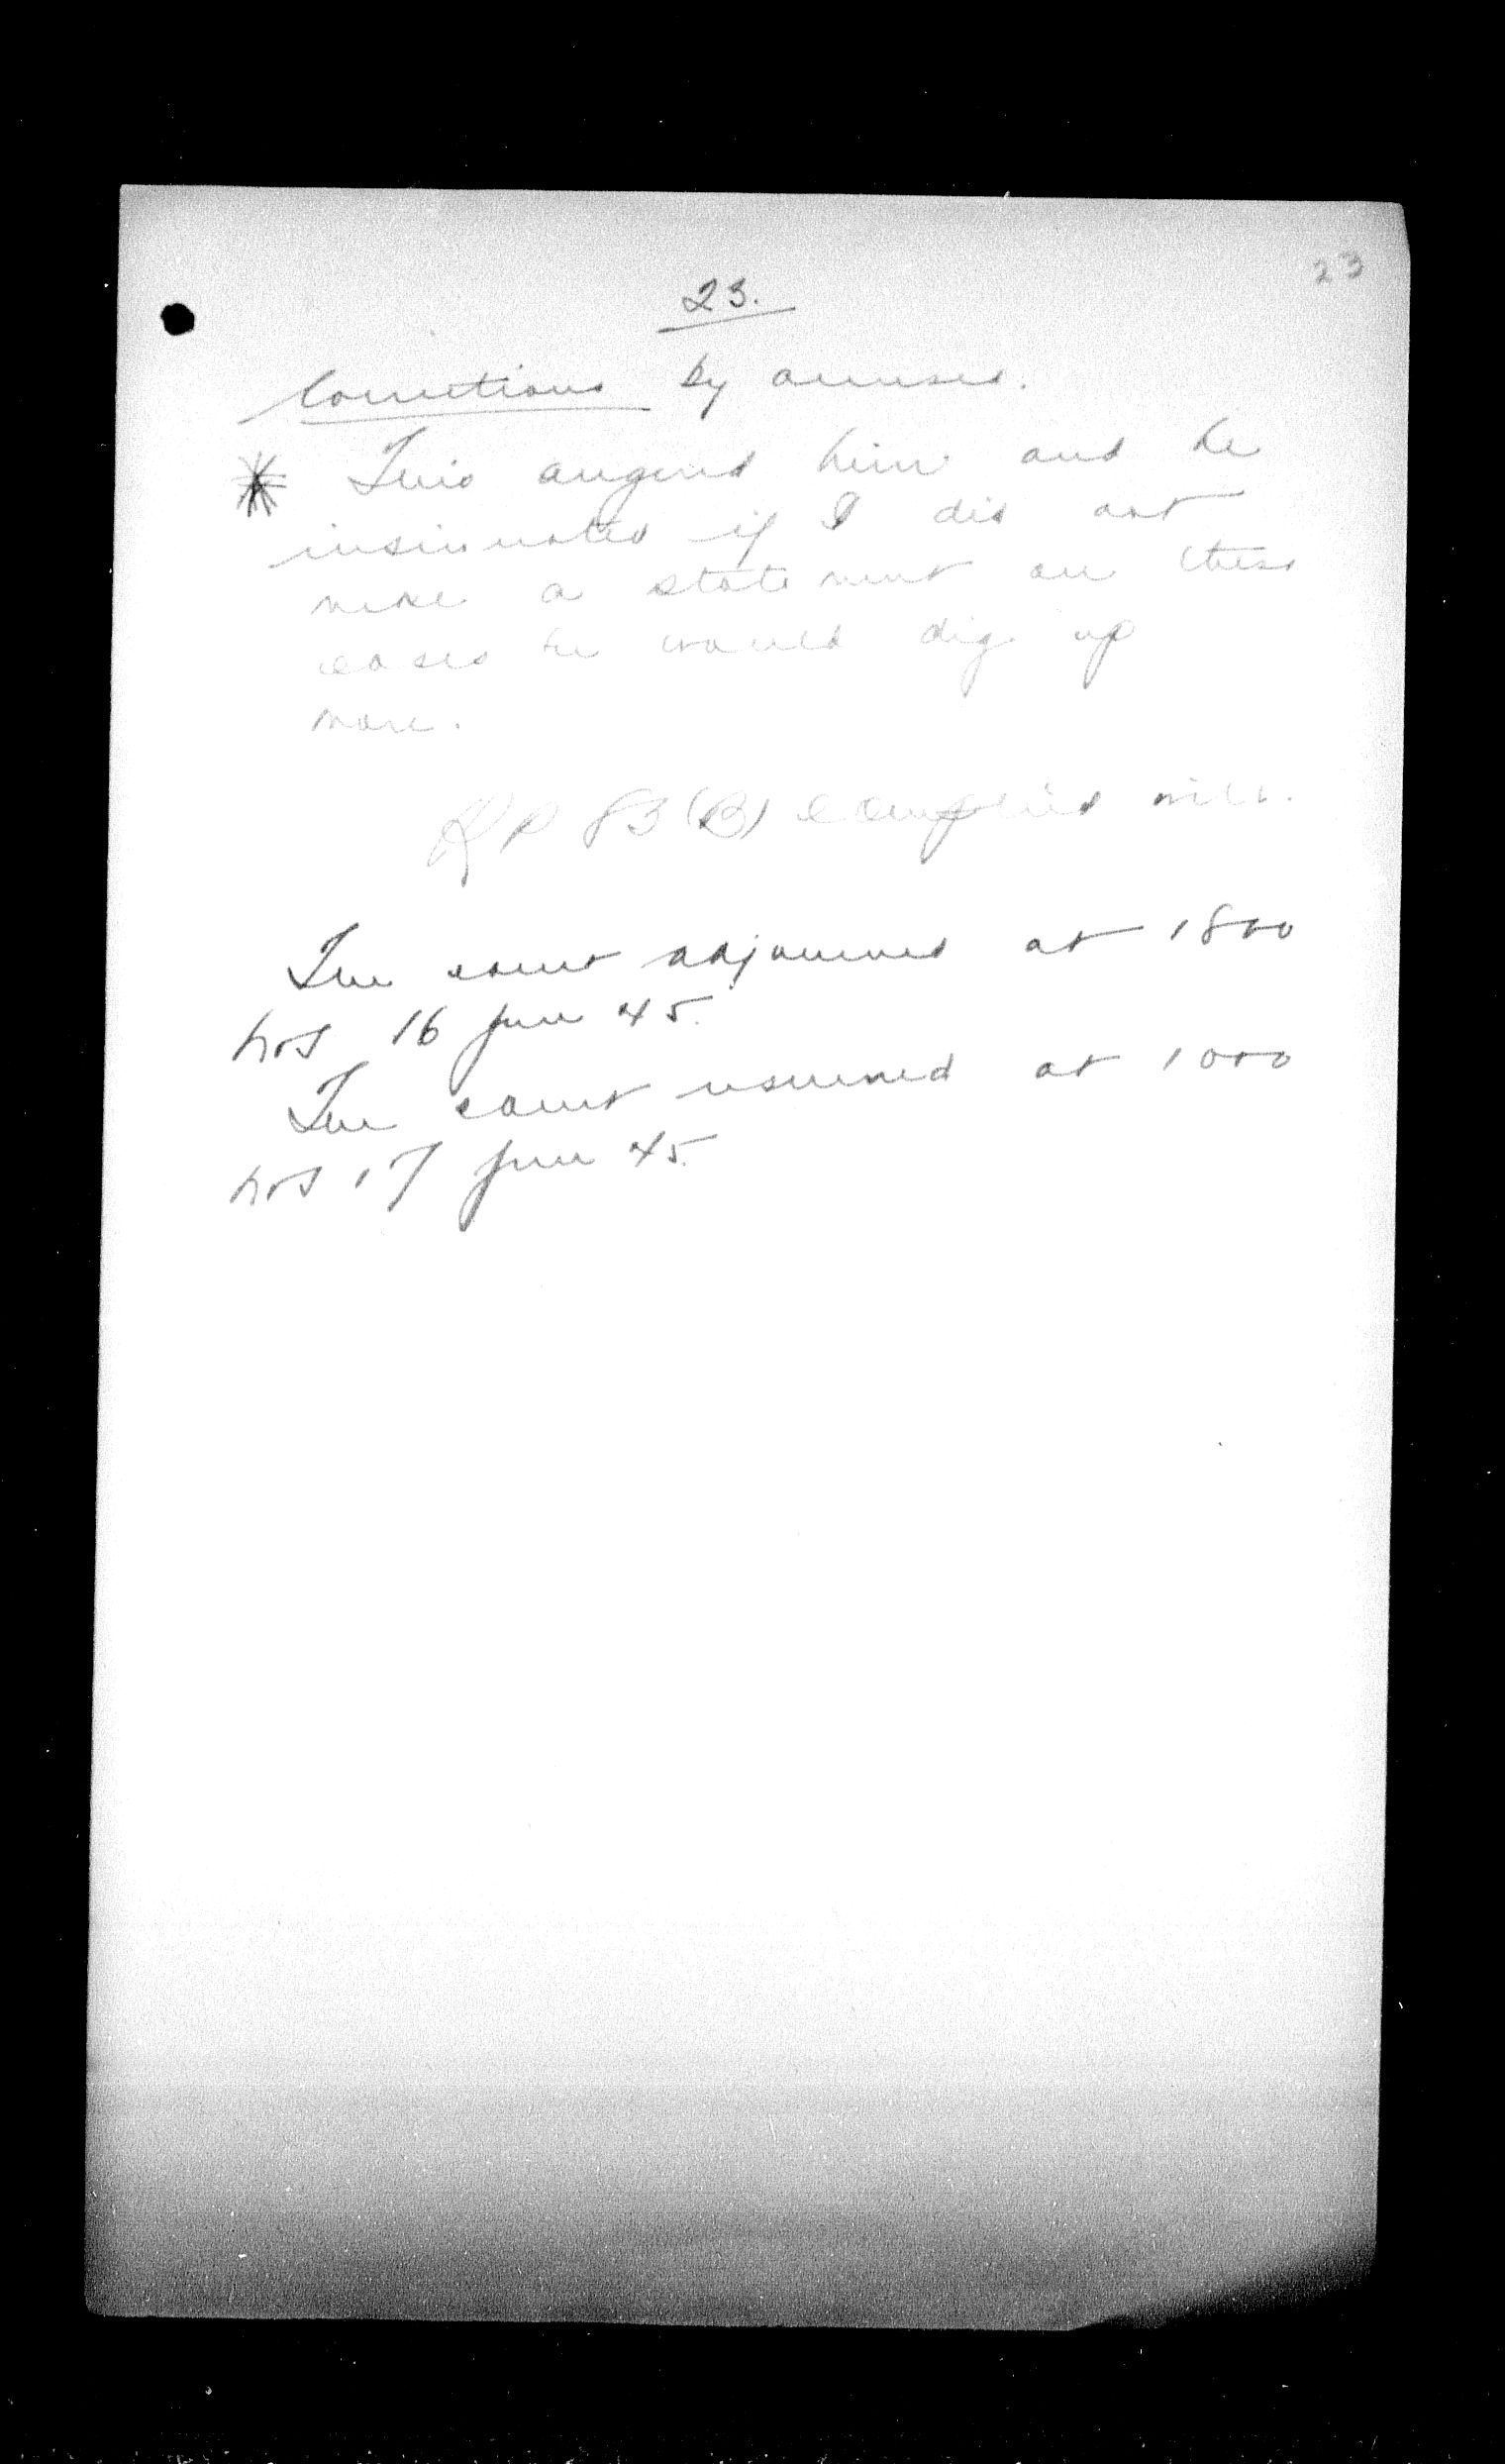 23
23.
Corrections by accused.
* This angered him and he
insinuated if I did not
make a statement on these
cases he would dig up
more.
RP 83 (B) complied with.
The court adjourned at 1800
hrs 16 June 45.
The court resumed at 1000
hrs 17 June 45.